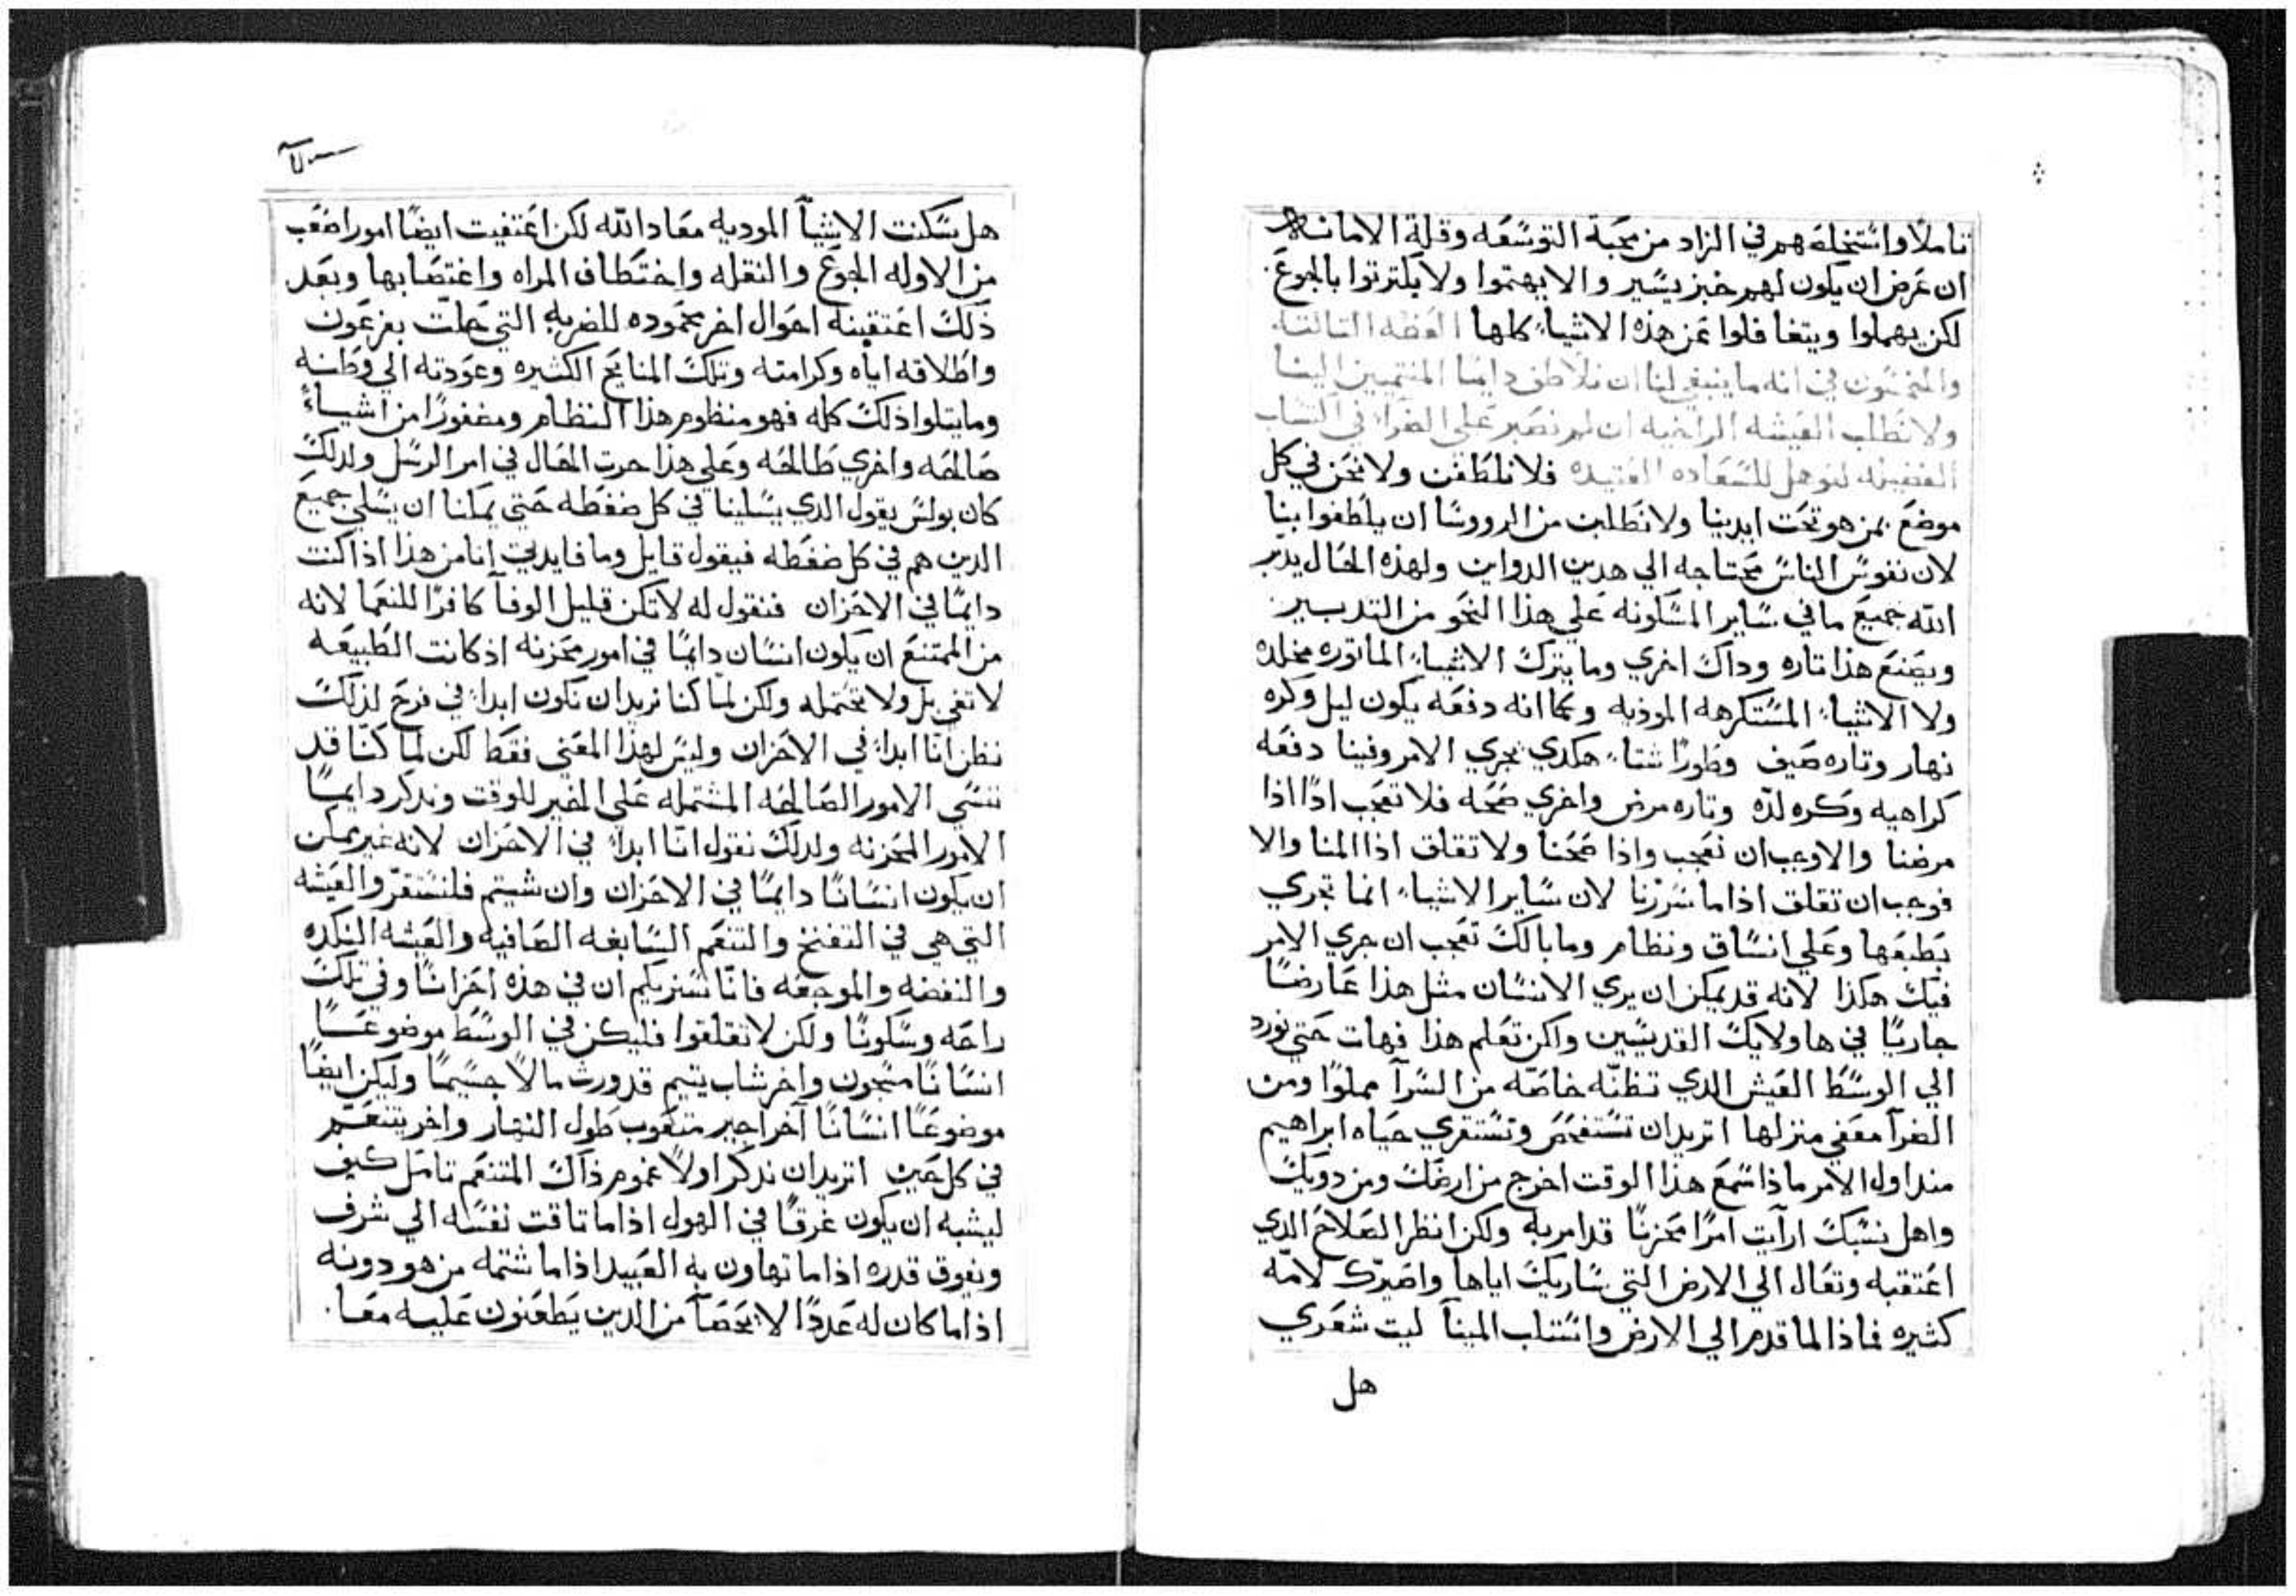 تاملًا واستخلهَ هم في الزاد من محبة التوسعه وقلة الامانه لا
ان عرض ان يكون لهم خبز يسير والا يهتموا ولا يكترتوا بالجوع
لكن يهملوا ويتغافلوا عن هذه الاشياء كلها العظه التالته
والخمسون في انه ما ينبغي لنا ان نلاطف دايمًا المنتميين الينا
ولا نطلب العيشه الراخيه ان لم نصبر على الضراء في اكتساب
الفضيله لنوهل للسعاده العتيده فلا نلطفن ولا نحن في كل
موضع بمن هو تحت ايدينا ولا نطلبن من الرووسا ان يلطفوا بنا
لان نفوس الناس محتاجه الي هدين الدواين ولهذه الحال يدبر
الله جميع ما في ساير المسكونه علي هذا النحو من التدبير
ويصنع هذا تاره وداك اخري وما يترك الاشياء الماتوره مخلده
ولا الاشياء المستكرهه الموذيه وكما انه دفعه يكون ليل وكره
نهار وتاره صيف وطورًا شتاء هكدي يجري الامر وفينا دفعه
كراهيه وكره لدّه وتاره مرض واخري صحه فلا تعجب ادًا اذا
مرضنا والا وجب ان تعجب واذا صححنا ولا تقلق اذا المنا والا
فوجب ان تقلق اذا ما سررنا لان ساير الاشياء انما تجري
بطبعها وعلي انساق ونظام وما بالك تعجب ان جري الامر
فيك هكذا لانه قد يمكن ان يري الانسان مثل هذا عارضًا
جاريًا في هاولايك القديسين ولكن تعلم هذا فهات حتي نورد
الي الوسط العيش الدي تظنّه خاصّه من السرآ مملوًا ومن
الضرآ معفي منزلها اتريد ان تستفحص وتستقري حياه ابراهيم
مند اول الامر ماذا سمع هذا الوقت اخرج من ارضك ومن دويك
واهل نسبك ارآيت امرًا محزنًا قد امر به ولكن انظر الصلاح الدي
اعتقبه وتعال الي الارض التي ساريك اياها واصيرّك لامّه
كثيره فماذا لما قدم الي الارض واستناب المينآ ليت شعري
هل
هل سكنت الاشيآ الموديه معاد الله لكن اعتقبت ايضًا امورا صعب
من الاوله الجوع والنقله واختطاف المراه واغتصابها وبعد
ذلك اعتقبنه احوال اخر محموده للضربه التي حلت بفرعون
واطلاقه اياه وكرامته وتلك المنايح الكثيره وعودته الي وطنه
وما يتلوا ذلك كله فهو منظوم هذا النظام ومضفورًا من اشياء
صالحه واخري طالحه وعلي هذا جرت الحال في امر الرسل ولدلك
كان بولس يقول الدي يسلينا في كل ضغطه حتي يمكنا ان يسلي جميع
الدين هم في كل ضغطه فيقول قايل وما فايدتي انا من هذا اذا كنت
دايمًا في الاحزان فنقول له لا تكن قليل الوفآ كافرًا للنعما لانه
من الممتنع ان يكون انسان دايمًا في امور محزنه اذ كانت الطبيعه
لا تفي بل ولا تحتمله ولكن لما كنا نريد ان نكون ابدا في فرح لذلك
نظن انّا ابداً في الاحزان وليس لهذا المعني فقط لكن لما كنّا قد
ننسي الامور الصالحه المشتمله على الخير للوقت وندكر دايمًا
الامور المحزنه ولدلك نقول انّا ابداً في الاحزان لانه غير ممكن
ان يكون انسانًا دايمًا في الاحزان وان شيتم فلنستقرّ والعيشه
التي هي في التفنخ والتنعم السابغه الصافيه والعيشه النكده
والنغضه والموجعه فانّا سنريكم ان في هذه احزانًا وفي تلك
راحه وسكونًا ولكن لا تقلقوا فليكن في الوسط موضوعًا
انسانًا مسجون واخر شاب يتيم قد ورث مالًا جسيمًا وليكن ايضًا
موضوعًا انسانًا آخر اجير متعوب طول النهار واخر يتنعم
في كل حين اتريد ان ندكر اولًا غموم ذاك المتنعم تامل كيف
ليشبه ان يكون غرقًا في الهول اذا ما تاقت نفسه الي شرف
ويفوق قدره اذا ما تهاون به العبيد اذا ما شتمه من هو دونه
اذا ما كان له عددًا لا يحصآ من الدين يطعنون عليه معا